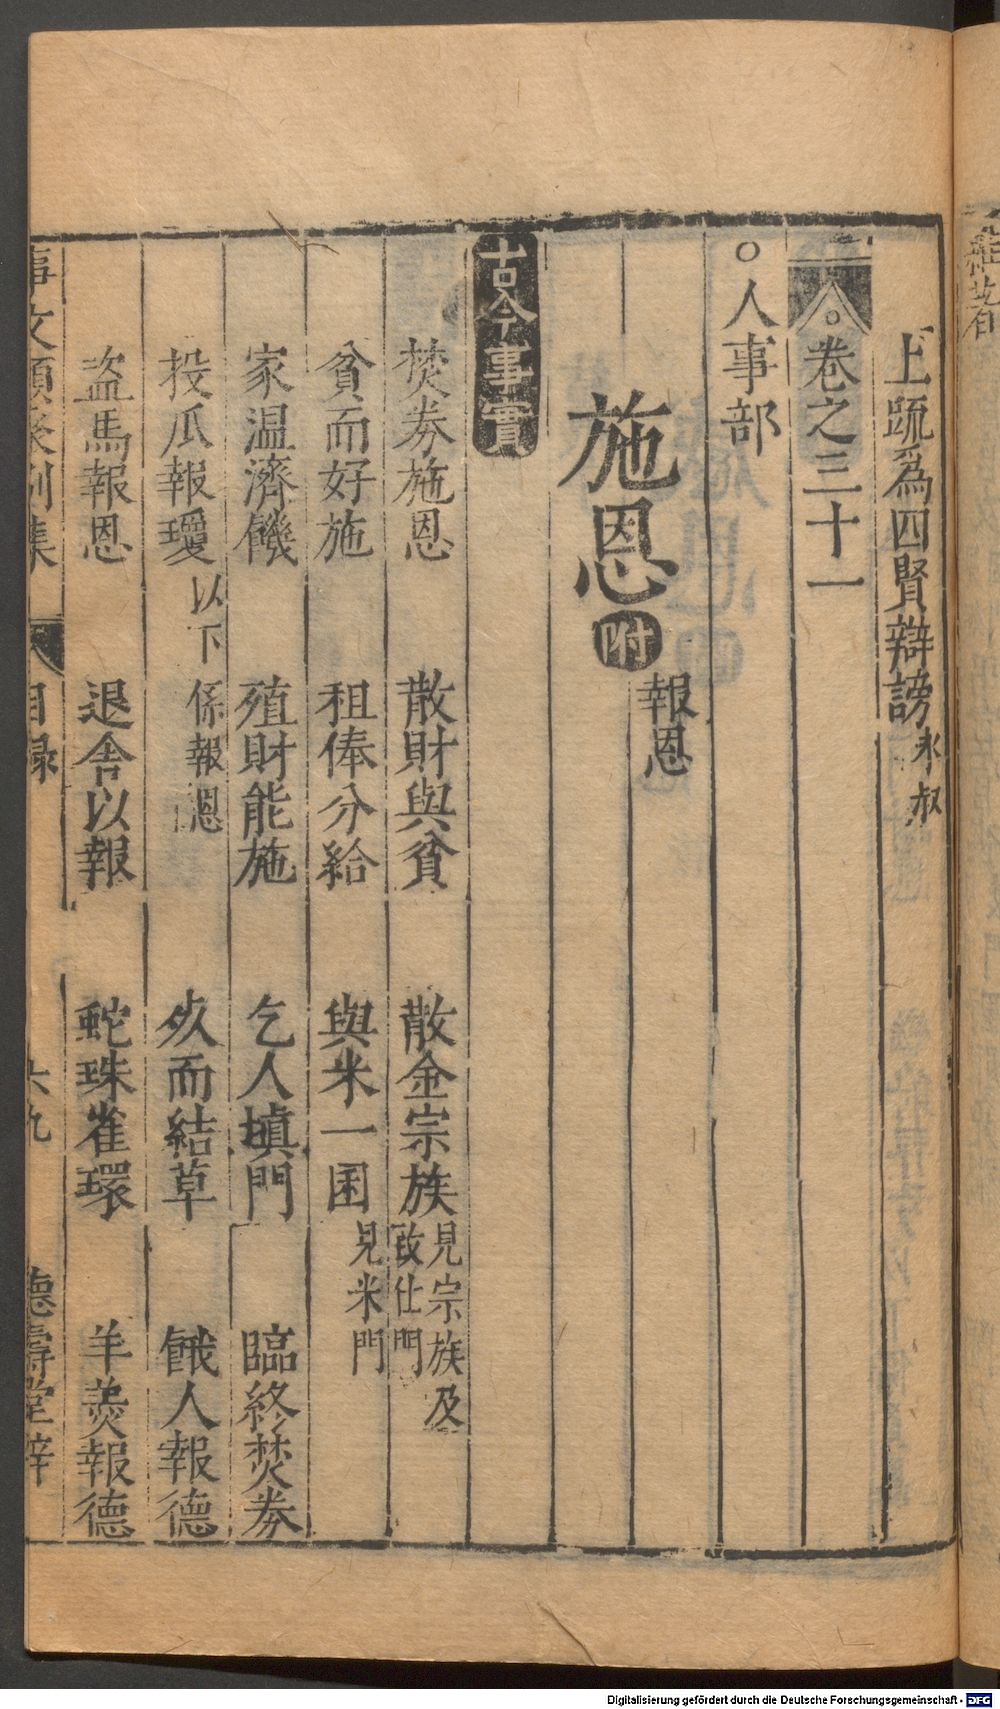 上䟽爲四賢辯謗 永叔
卷之三十一
人事部
施恩 附 報恩
古今事實
焚券施恩 散財與貧 散金宗族 見宗族及致仕門
貧而好施 租俸分給 與米一囷 見米門
家温濟饑 殖財能施 乞人填門 臨終焚券
投瓜報瓊 以下係報恩 夾而結草 餓人報德
盗馬報恩 退舍以報 蛇珠雀環 羊羮報德
事文類聚別集 目録 六九 德壽堂梓
Digitalisierung gefördert durch die Deutsche Forschungsgemeinschaft - DFG